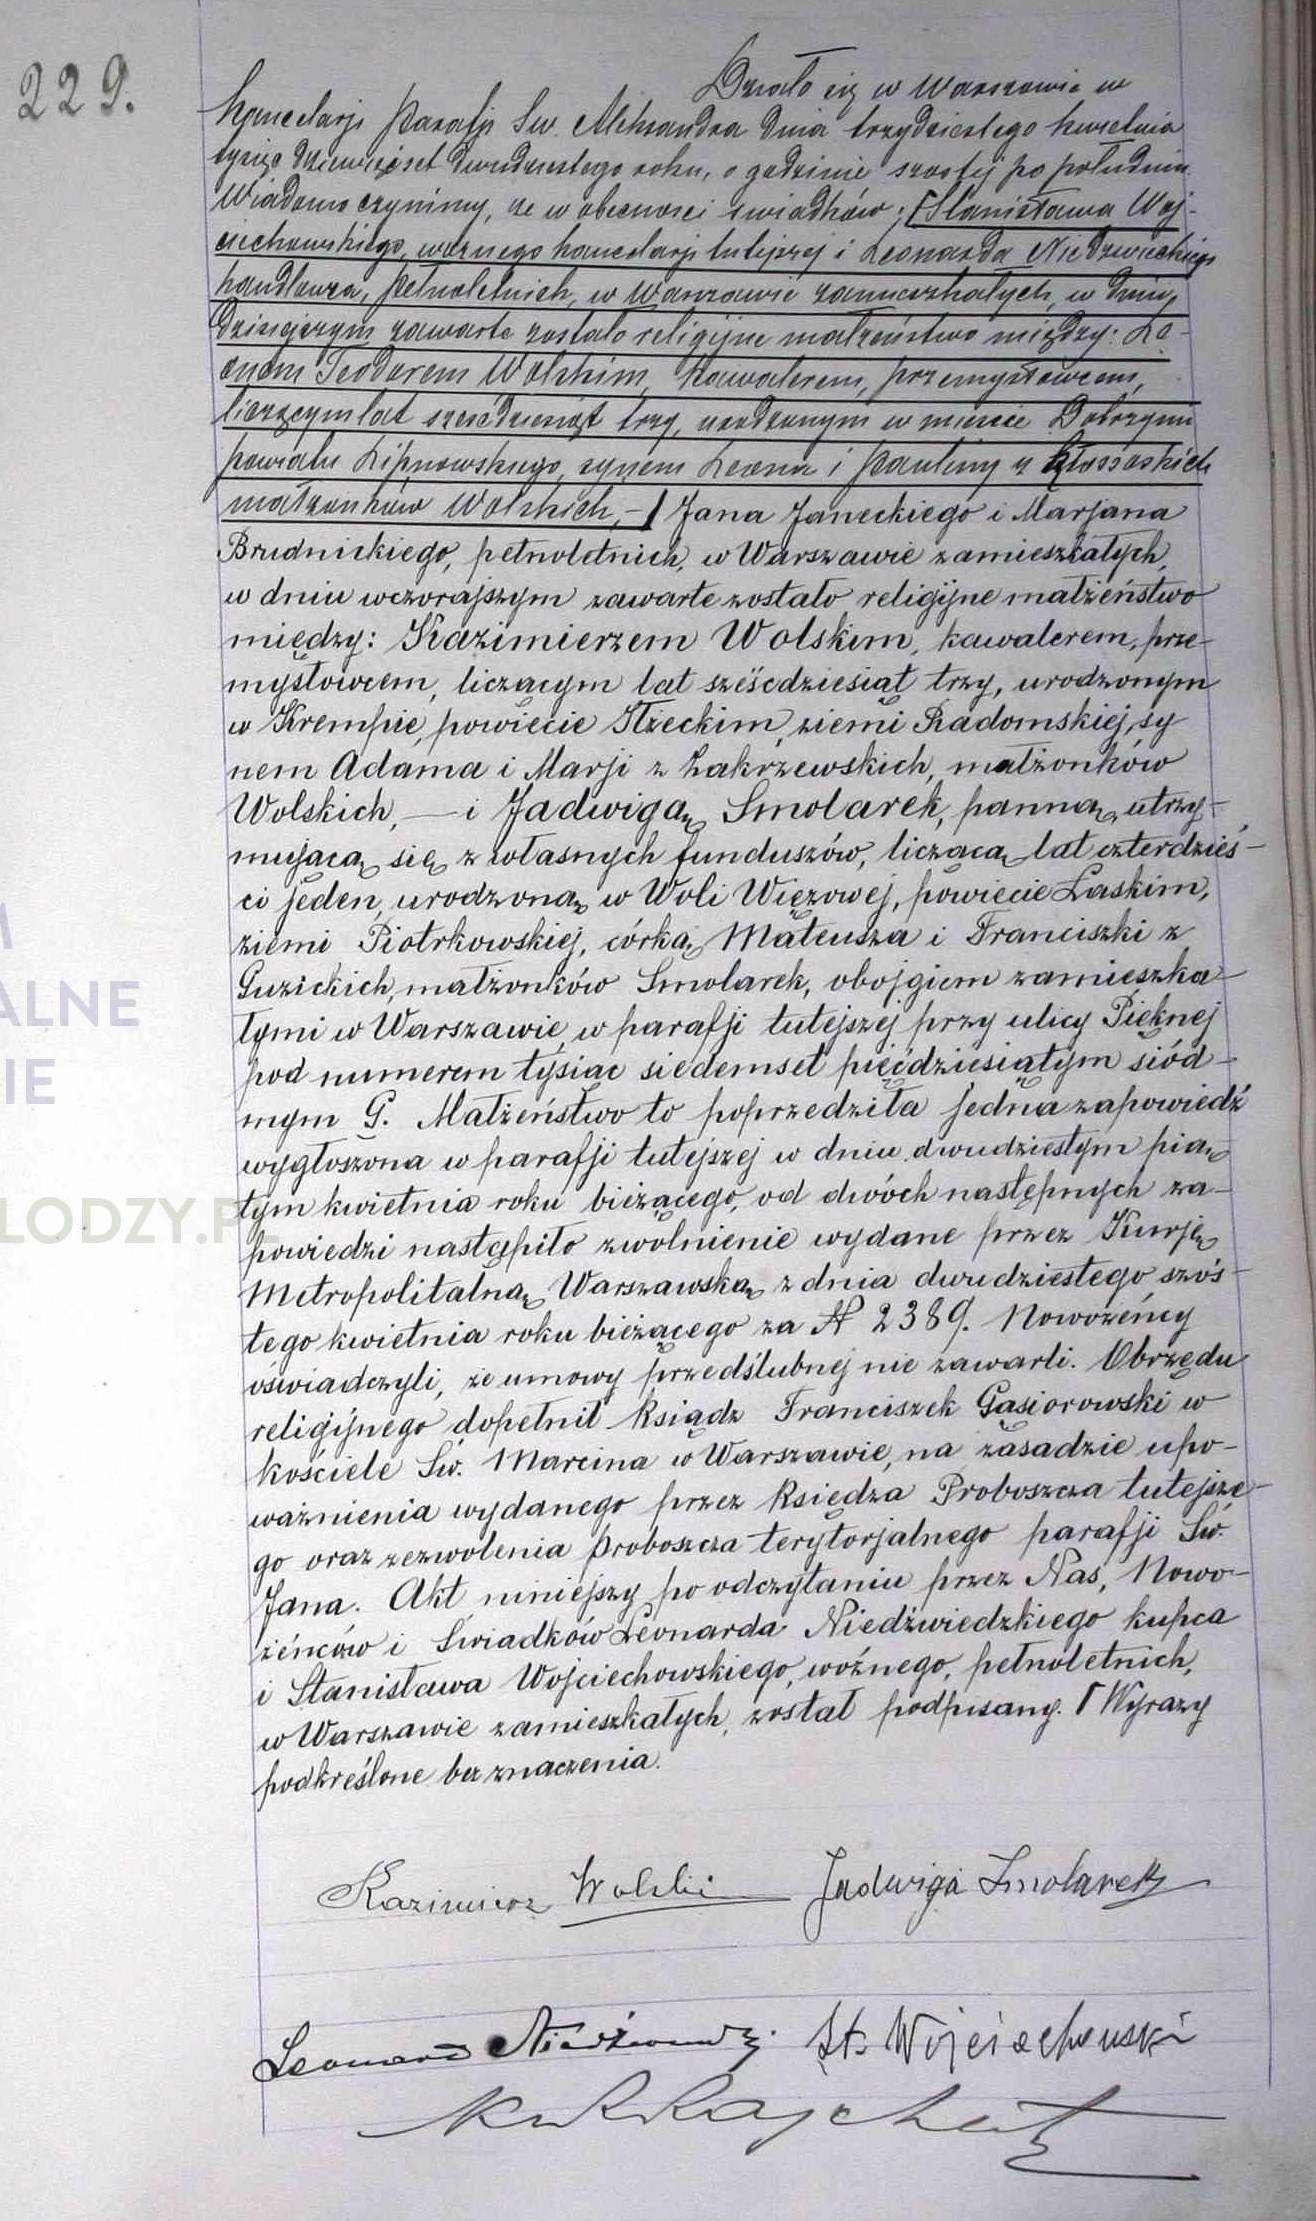 229.
Działo się w Warszawie w
kancelarji parafji Św. Aleksandra dnia trzydziestego kwietnia
tysiąc dziewięćset dwudziestego roku, o godzinie szóstej po południu.
Wiadomo czynimy, że w obecności świadków: Stanisława Woj-
ciechowskiego, woźnego kancelarji tutejszej i Leonarda Niedzwieckiego
handlowca, pełnoletnich, w Warszawie zamieszkałych, w dniu
dzisiejszym zawarte zostało religijne małżeństwo między: Le-
onem Teodorem Wolskim, kawalerem, przemysłowcem,
liczącym lat sześćdziesiąt trzy, urodzonym w mieście Dobrzyniu
powiatu Lipnowskiego, synem Leona i Pauliny z
małżonków Wolskich, - Jana Janeckiego i Marjana
Brudnickiego, pełnoletnich, w Warszawie zamieszkałych,
w dniu wczorajszym zawarte zostało religijne małżeństwo
między: Kazimierzem Wolskim, kawalerem, prze-
mysłowcem, liczącym lat sześćdziesiąt trzy, urodzonym
w Krempie, powiecie Iłżeckim, ziemi Radomskiej, sy
nem Adama i Marji z Zakrzewskich, małżonków
Wolskich, — i Jadwigą Smolarek, panną, utrzy-
mującą się z własnych funduszów, liczącą lat czterdzieś-
ci jeden, urodzoną w Woli Więzowej, powiecie Łaskim,
ziemi Piotrkowskiej, córką Mateusza i Franciszki z
Guzickich, małżonków Smolarek, obojgiem zamieszka-
łymi w Warszawie, w parafji tutejszej przy ulicy Pięknej
pod numerem tysiąc siedemset pięćdziesiątym siód-
mym G. Małżeństwo to poprzedziła jedna zapowiedź
wygłoszona w parafji tutejszej w dniu dwudziestym pią-
tym kwietnia roku bieżącego, od dwóch następnych za-
powiedzi nastąpiło zwolnienie wydane przez Kurję
Metropolitalną Warszawską z dnia dwudziestego szós-
tego kwietnia roku bieżącego za № 2389. Nowożeńcy
oświadczyli, że umowy przedślubnej nie zawarli. Obrzędu
religijnego dopełnił ksiądz Franciszek Gąsiorowski w
kościele Św. Marcina w Warszawie, na zasadzie upo-
ważnienia wydanego przez księdza Proboszcza tutejsze-
go oraz zezwolenia proboszcza terytorjalnego parafji Św.
Jana. Akt niniejszy po odczytaniu przez Nas, Nowo-
żeńców i Świadków Leonarda Niedźwiedzkiego kupca
i Stanisława Wojciechowskiego, woźnego, pełnoletnich,
w Warszawie zamieszkałych, został podpisany. Wyrazy
podkreślone bez znaczenia.
Kazimierz Wolski Jadwiga Smolarek
Leonard St. Wojciechowski
M
ALNE
IE
LODZY.PL